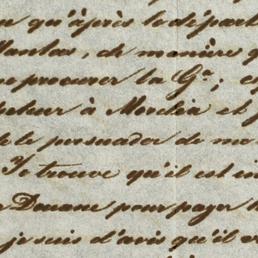 qu'après le départ
de manière q
procurer la Ga;
à Morelia et j
le persuader de me
Je trouve qu'il est
Douane pour payer
je suis d'avis qu'il